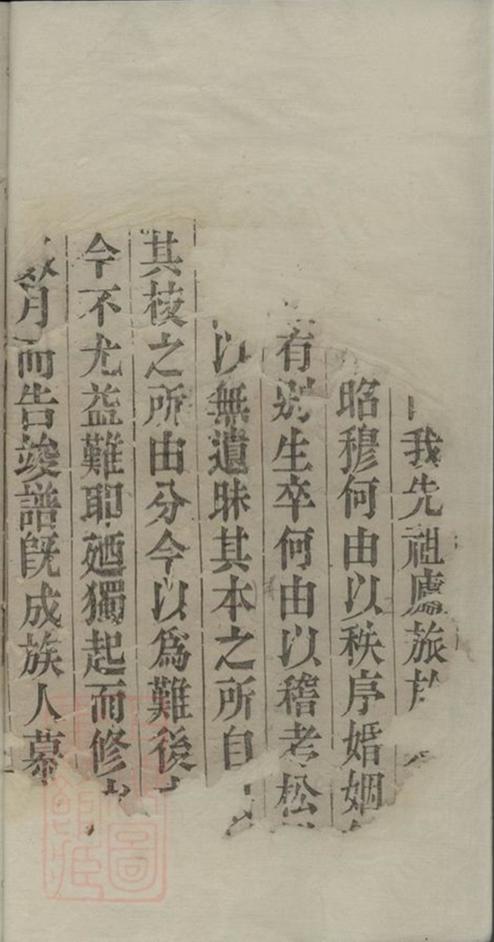 我先祖廬旅
昭穆何由以秩序婚姻
有别生卒何由以稽考松
以無遺昧其本之所自
其枝之所由分今以爲難後
今不尤益難耶廼獨起而修
月而告竣譜旣成族人募